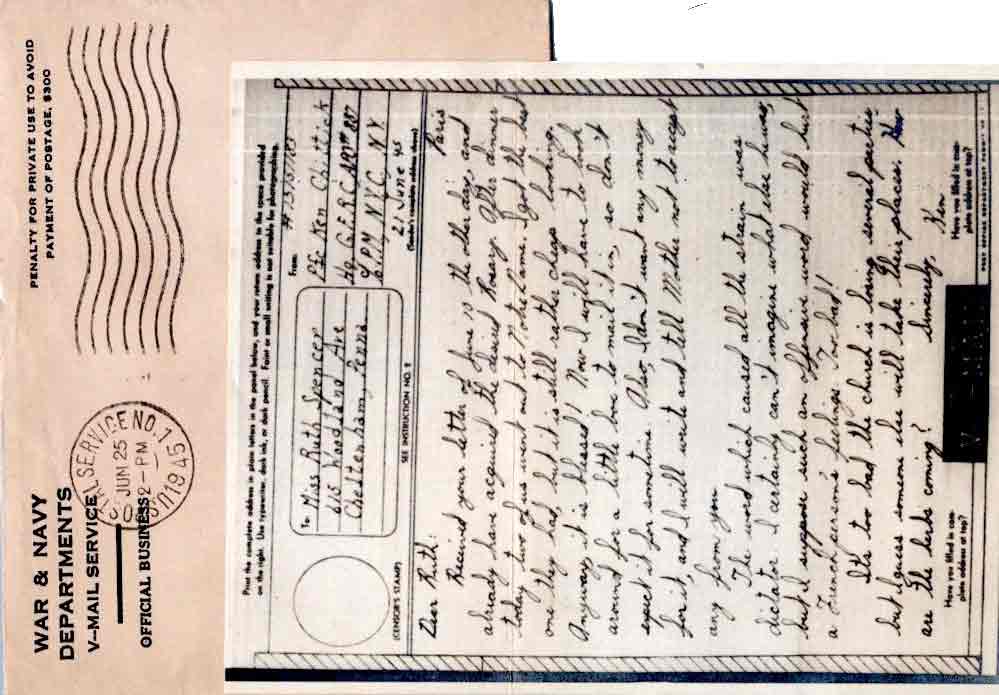 WAR & NAVY
DEPARTMENTS
V–MAIL SERVICE
OFFICIAL BUSINESS
POSTAL SERVICE NO. 1
JUN 25
2–PM
1945
PENALTY FOR PRIVATE USE TO AVOID
PAYMENT OF POSTAGE, $300
Print the complete address in plain letters in the panel below, and your return address in the space provided
on the right. Use typewriter, dark ink, or dark pencil. Faint or small writing is not suitable for photographing.
To Miss Ruth Spencer
615 Woodland Ave
Cheltenham, Penna
From
Ken Chittick
N.Y.C, N.Y.
21 June 45
(Sender's complete address above)
(CENSOR'S STAMP)
SEE INSTRUCTION NO. 2
Paris
Dear Ruth:
Received your letter of June 10 the other day, and
already have acquired the desired Rosary. After dinner
today two of us went out to Notre Dame. I got the best
one they had, but it is still rather cheap looking.
Anyway, it is blessed! Now I will have to look
around for a little box to mail it in, so don't
expect it for sometime. Also, I don't want any money
for it, and I will write and tell Mother not to accept
any from you.
The word which caused all the strain was
dictator. I certainly can't imagine what else
but I suppose such an offensive word would hurt
a French person's feelings. Too bad!
It's too bad the church is losing several parties
but I guess someone else will take their places. How
are the kids coming?
Sincerely,
Ken
Have you filled in com-
plete address at top?
V···—MAIL
Have you filled in com-
plete address at top?